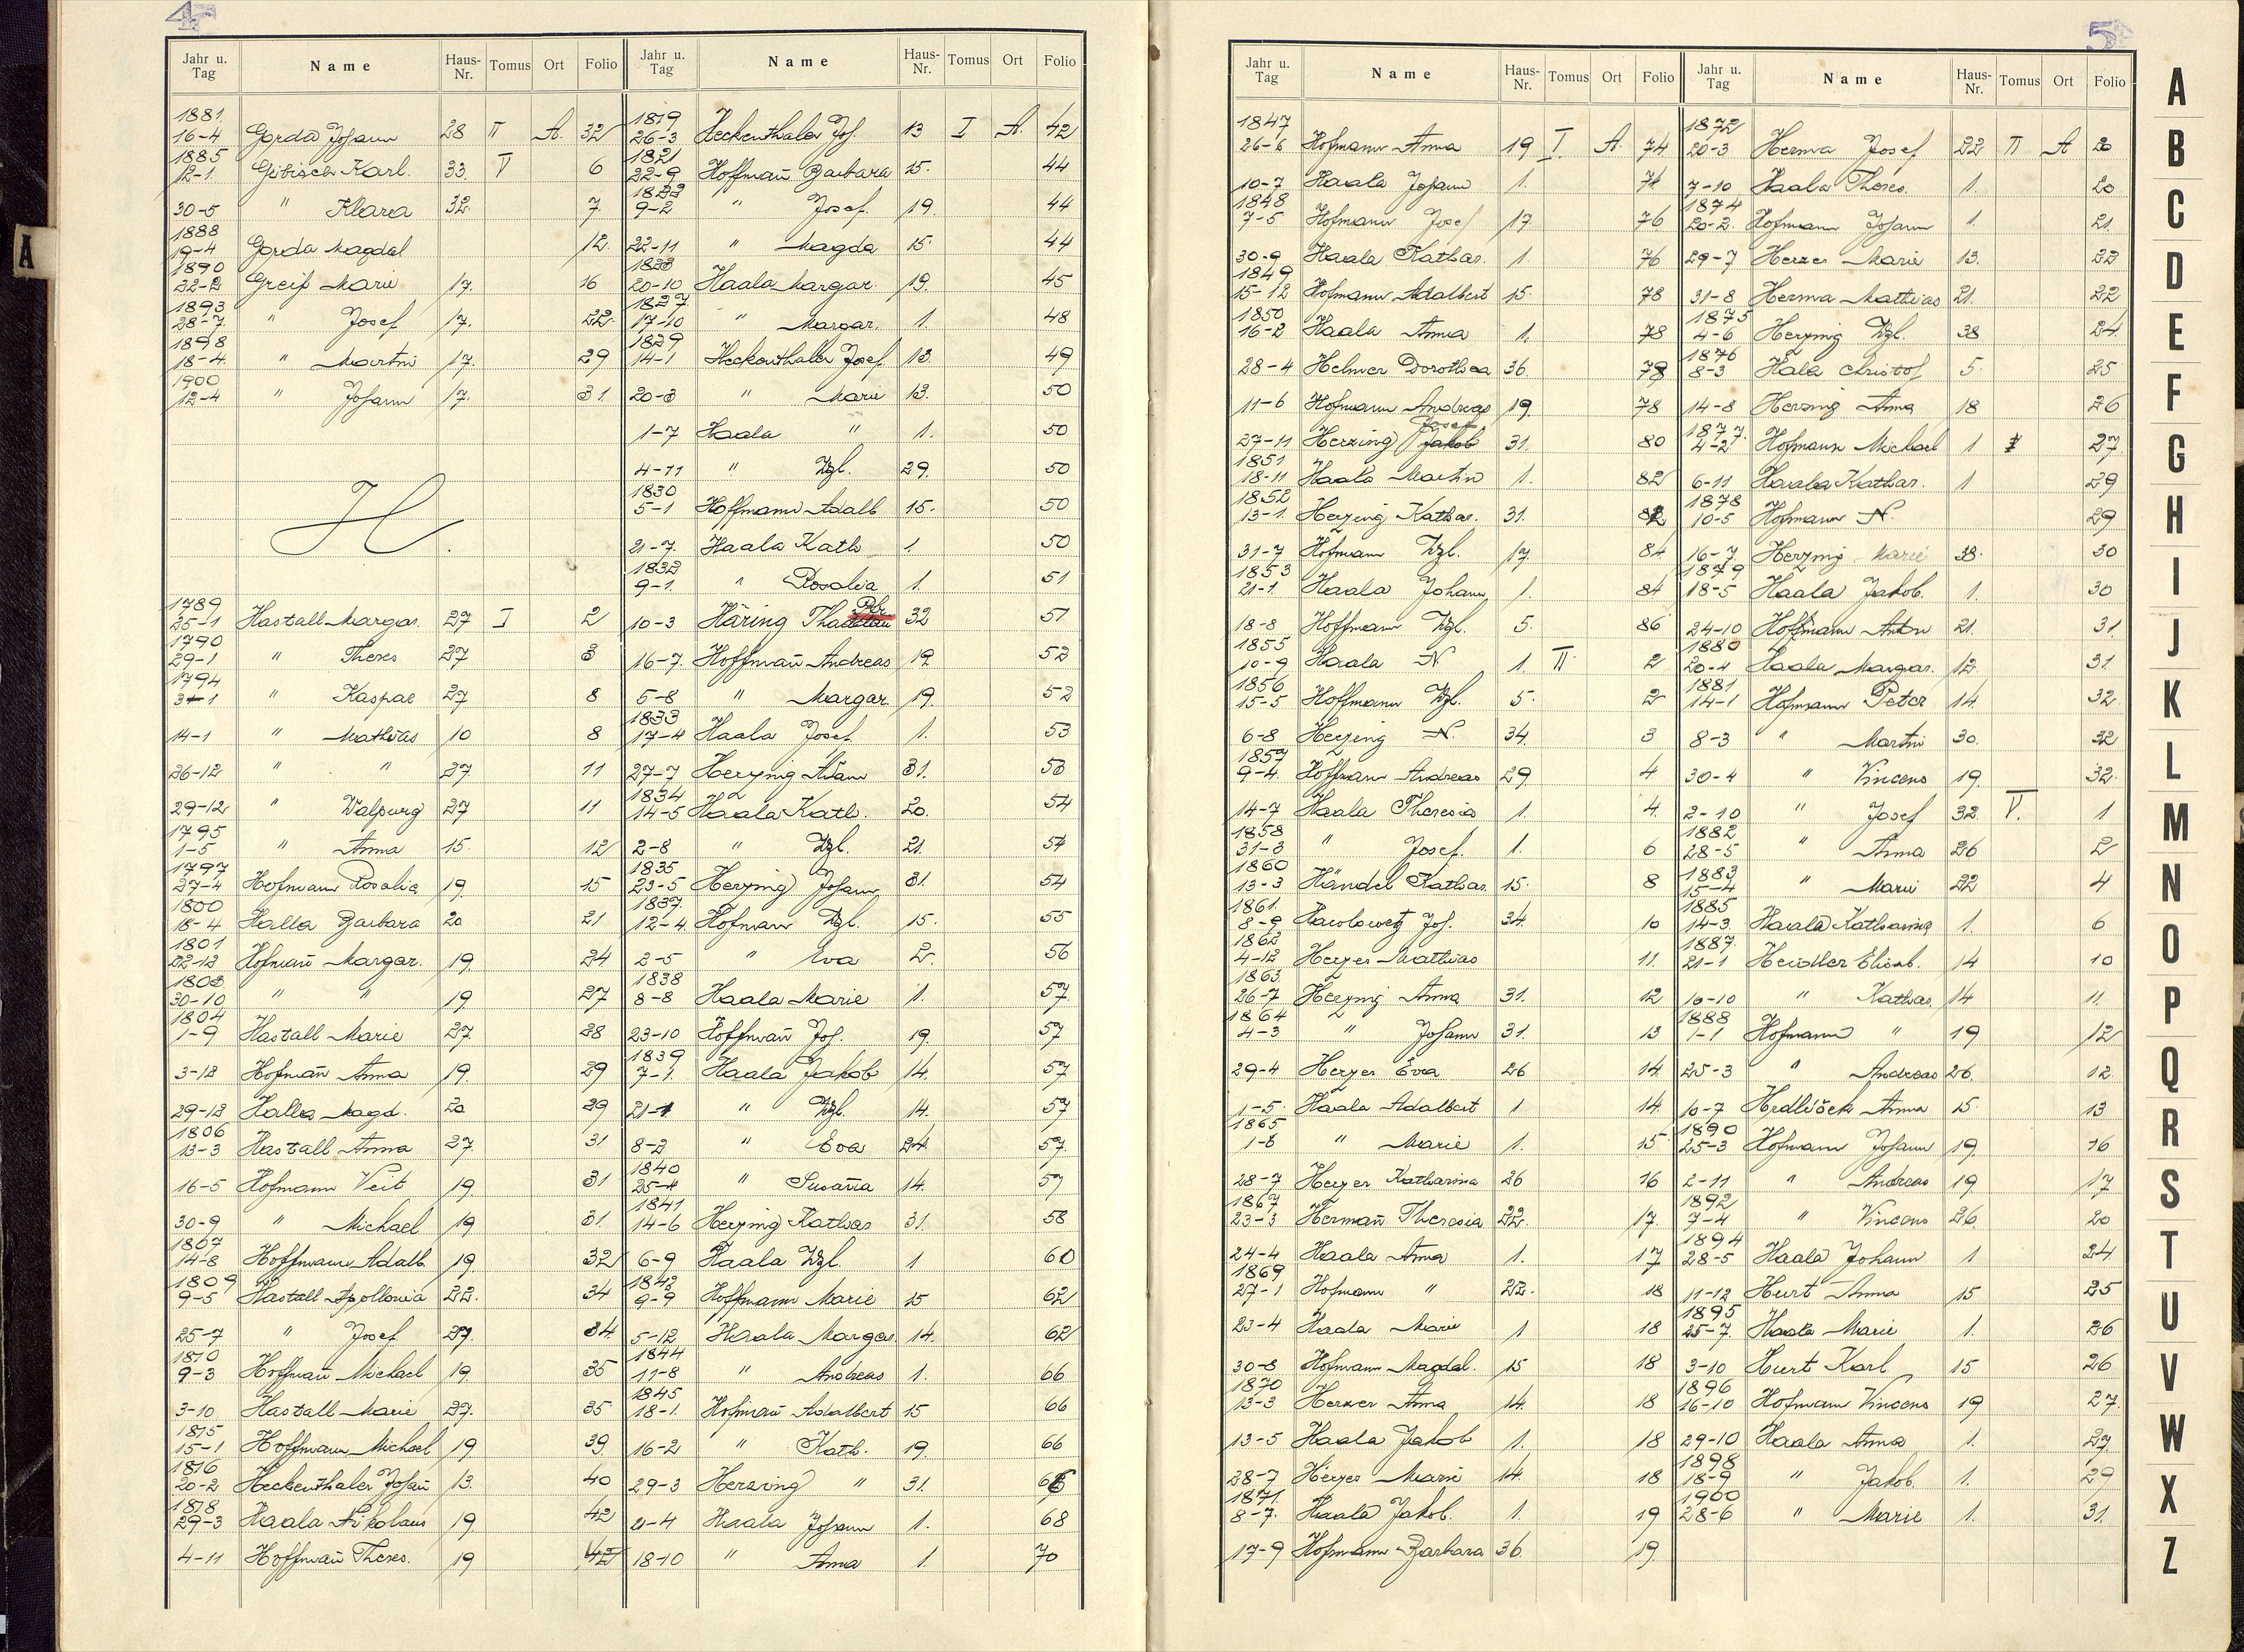 4
Jahr u. Tag Name Haus-Nr. Tomus Ort Folio
1881.
16-4 Gorda Johann 28 II A. 32
1885
12-1. Gibisch Karl. 33. V 6
30-5 " Klara 32. 7
1888
19-4 Gorda Magdal 12.
1890
22-2 Greif Marie 17. 16
1893
28-7. " Josef 17. 22.
1898
18-4. " Martin 17. 29
1900
12-4 " Johann 17. 31.
H.
1789
25-1 Hastall Margar. 27 I 2
1790
29-1 " Theres 27 3
1794
3-1 " Kaspar 27 8
14-1 " Mathias 10 8
26-12 " " 27 11
29-12 " Walpurg 27 11
1795
1-5 " Anna 15. 12
1797
27-4 Hofmann Rosalia 19. 15
1800
18-4 Halla Barbara 20 21
1801
22-12 Hofmañ Margar. 19. 24
1803
30-10 " " 19. 27
1804
1-9 Hastall Marie 27. 28
3-12 Hofmañ Anna 19. 29
29-12 Halla Magd. 20 29
1806
13-3 Hastall Anna 27. 31
16-5 Hofmann Veit 19. 31
30-9 " Michael 19 31.
1807
14-8 Hoffmann Adalb. 19 32
1809
9-5 Hastall Apollonia 22. 34
25-7 " Josef 27. 34.
1810
9-3 Hoffmañ Michael 19. 35
3-10 Hastall Marie 27. 35
1815
15-1 Hoffmann Michael 19 39
1816
20-2 Heckenthaler Johañ 13. 40
1818
29-3 Haala Nikolaus 19 42
4-11 Hoffmañ Theres. 19 42
Jahr u. Tag Name Haus-Nr. Tomus Ort Folio
1819
26-3 Heckenthaler Jos. 13 I A. 42
1821
22-9 Hoffmañ Barbara 15. 44
1822
9-2 " Josef. 19. 44
22-11 " Magda 15. 44
1823
20-10 Haala Margar. 19. 45
1827.
17-10 " Margar. 1. 48
1829
14-1 Heckenthaler Josef 13. 49
20-3 " Marie 13. 50
1-7 Haala " 1. 50
4-11 " Wzl. 29. 50
1830
5-1 Hoffmann Adalb 15. 50
21-7. Haala Kath 1. 50
1832
9-1. " Rosalia 1. 51
10-3 Häring 32 51
16-7. Hoffmañ Andreas 19. 52
5-8 " Margar. 19. 52
1833
17-4 Haala Josef. 1. 53
27-7 Herzing Adam 31. 53
1834
14-5 Haala Kath. 20. 54
2-8 " Wzl. 21. 54
1835
23-5 Herzing Johann 31. 54
1837.
12-4. Hofmann Wzl. 15. 55
2-5 " Eva 2. 56
1838
8-8 Haala Marie 1. 57.
23-10 Hoffmañ Jos. 19. 57
1839
7-1. Haala Jakob 14. 57
21-1 " Wzl. 14. 57
8-2 " Eva 24 57.
1840
25-4 " Susaña 14. 57
1841
14-6 Herzing Kathar 31. 58
6-9 Haala Wzl. 1 60
1843
9-9 Hoffmann Marie 15 62
5-12 Haala Margar. 14. 62
1844
11-8 " Andreas 1. 66
1845
18-1. Hofmañ Adalbert 15 66
16-2 " Kath. 19. 66
29-3 Herzing " 31.
21-4 Haala Johann 1. 68
18-10 " Anna 1. 70
5
Jahr u. Tag Name Haus-Nr. Tomus Ort Folio
1847
26-6 Hofmann Anna 19 I. A. 74
10-7 Haala Johann 1. 74
1848
7-5 Hofmann Josef 17. 76
30-9 Haala Kathar. 1. 76
1849
15-12 Hofmann Adalbert 15. 78
1850
16-2 Haala Anna 1. 78
28-4 Helmer Dorothea 36. 78
11-6 Hofmann Andreas 19. 78
Josef
27-11 Herzing Jakob 31. 80
1851
18-11 Haala Martin 1. 82
1852
13-1. Herzing Kathar. 31. 82
31-7 Hofmann Wzl. 17. 84
1853
21-1. Haala Johann 1. 84
18-8 Hoffmann Wzl. 5. 86
1855
10-9 Haala N 1. II 2
1856
15-5 Hoffmann Wzl. 5. 2
6-8 Herzing N. 34. 3
1857
9-4. Hoffmann Andreas 29. 4
14-7 Haala Theresia 1. 4.
1858
31-3 " Josef. 1. 6
1860
13-3 Händel Kathar. 15. 8
1861.
8-9 Jos. 34. 10
1862
4-12 Herzer Mathias 11.
1863.
26-7 Herzing Anna 31. 12
1864
4-3 " Johann 31. 13
29-4 Herzer Eva 26 14.
1-5. Haala Adalbert 1 14.
1865
1-8 " Marie 1. 15
28-7 Herzer Katharina 26 16
1867
23-3 Hermañ Theresia 22. 17.
24-4 Haala Anna 1. 17
1869
27-1 Hofmann " 22. 18
23-4 Haala Marie 1 18
30-8 Hofmann Magdal. 15 18
1870
13-3 Herzer Anna 14. 18
13-5 Haala Jakob 1. 18
28-7 Herzer Marie 14. 18
1871.
8-7. Haala Jakob. 1. 19
17-9 Hofmann Barbara 36 19.
Jahr u. Tag Name Haus-Nr. Tomus Ort Folio
1872
20-3 Herma Josef 22 II A 20
7-10 Haala Theres. 1. 20
1874
20-2. Hofmann Johann 1. 21.
29-7 Herzer Marie 13. 22
31-8 Herma Mathias 21. 22
1875
4-6 Herzing Wzl. 38 24.
1876
8-3 Hala Christof 5. 25
14-8 Herzing Anna 18 26
1877.
4-2 Hofmann Michael 1 27.
6-11 Haala Kathar. 1 29
1878
10-5 Hofmann N. 29
16-7 Herzing Marie 38. 30
1879
18-5 Haala Jakob. 1. 30
24-10 Hoffmann Anton 21. 31.
1880
20-4 Haala Margar. 12. 31
1881
14-1 Hofmann Peter 14. 32
8-3 " Martin 30. 32
30-4 " Vincens 19. 32.
2-10 " Josef 32. V. 1
1882
28-5 " Anna 26 2
1883
15-4 " Marie 22 4
1885
14-3. Haala Katharina 1. 6
1887.
21-1 Heidler Elisab. 14 10
10-10 " Kathar. 14 11.
1888
1-1 Hofmann " 19 12
25-3 " Andreas 26. 12.
10-7 Hrdliček Anna 15 13
1890
25-3 Hofmann Johann 19. 16
2-11 " Andreas 19 17
1892
7-4 " Vincens 26. 20
1894
28-5 Haala Johann 1 24
11-12 Hurt Anna 15 25
1895
25-7. Haala Marie 1. 26
3-10 Hurt Karl 15 26
1896
16-10 Hofmann Vincens 19 27.
29-10 Haala Anna 1. 27.
1898
18-9 " Jakob. 1. 29
1900
28-6 " Marie 1. 31.
A
B
C
D
E
F
G
H
I
J
K
L
M
N
O
P
Q
R
S
T
U
V
W
X
Z
A